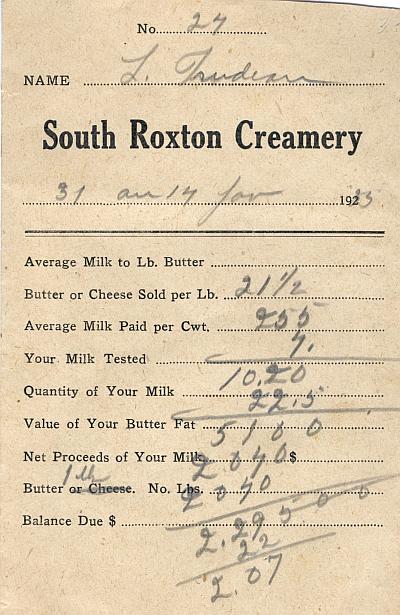 No. 27
NAME L. Trudeau
South Roxton Creamery
31 au 14 1925
Average Milk to Lb. Butter
Butter or Cheese Sold per Lb. 21 1/2
Average Milk Paid per Cwt. 255
Your Milk Tested 4.
Quantity of Your Milk 10.20
22.5
Value of Your Butter Fat 5100
Net Proceeds of Your Milk 2040 $
1 lb
Butter or Cheese. No. Lbs. 2040
Balance Due $ 2.29500
22
2.07